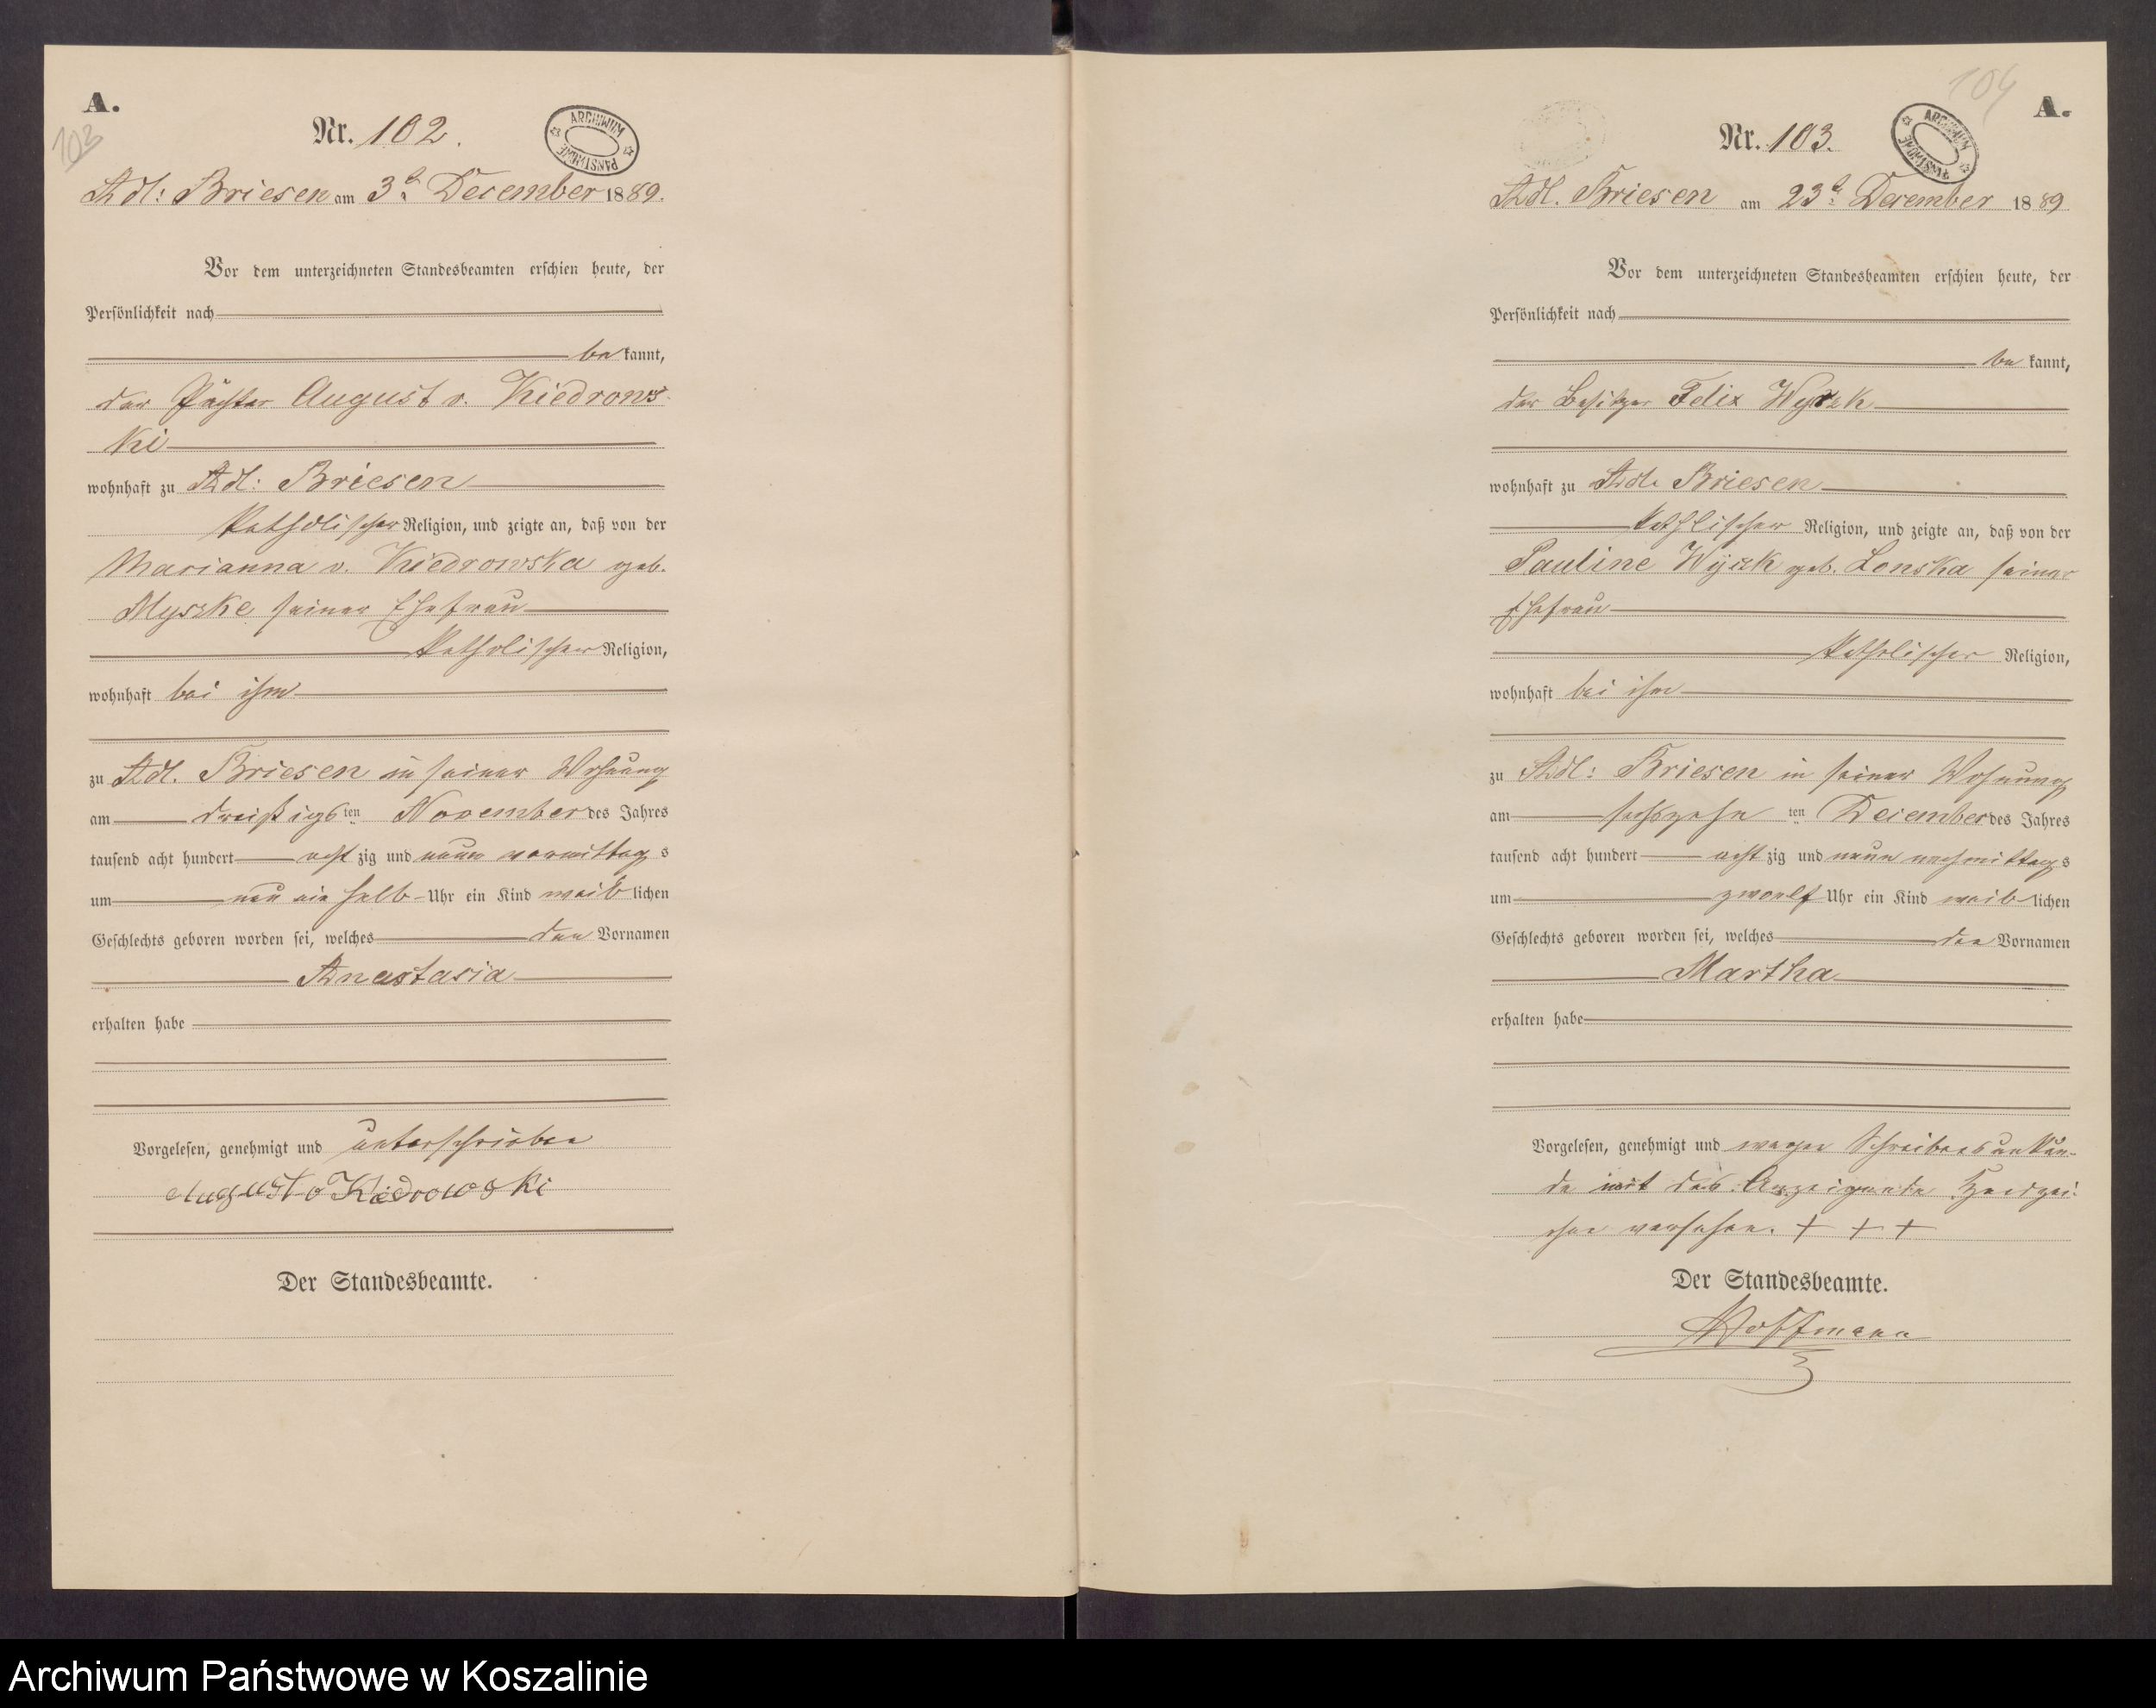 A.
103
Nr. 102.
ARCHIWUM PAŃSTWOWE
Adl: Briesen am 3t December 1889.
Vor dem unterzeichneten Standesbeamten erschien heute, der
Persönlichkeit nach
bekannt,
der Pächter August v. Kiedrows-
ki
wohnhaft zu Adl: Briesen
katholischer Religion, und zeigte an, daß von der
Marianna v. Kiedrowska geb.
Myszke seiner Ehefrau
katholischer Religion,
wohnhaft bei ihm
zu Adl. Briesen in seiner Wohnung
am dreißigsten November des Jahres
tausend acht hundert achtzig und neun vormittags
um Uhr ein Kind weiblichen
Geschlechts geboren worden sei, welches den Vornamen
Anastasia
erhalten habe
Vorgelesen, genehmigt und unterschrieben
August v Kiedrowski
Der Standesbeamte.
104
A.
Nr. 103.
ARCHIWUM PAŃSTWOWE
Adl. Briesen am 23t December 1889
Vor dem unterzeichneten Standesbeamten erschien heute, der
Persönlichkeit nach
bekannt,
der Besitzer Felix Wyrzk
wohnhaft zu Adl. Briesen
kathlischer Religion, und zeigte an, daß von der
Pauline geb. Lonska seiner
Ehefrau
katholischer Religion,
wohnhaft bei ihm
zu Adl: Briesen in seiner Wohnung
am sechszehnten December des Jahres
tausend acht hundert achtzig und neun nachmittags
um zwoelf Uhr ein Kind weiblichen
Geschlechts geboren worden sei, welches den Vornamen
Martha
erhalten habe
Vorgelesen, genehmigt und wegen Schreibensunkun-
de mit des Anzeigende Handzei-
chen versehen. + + +
Der Standesbeamte.
Hoffmann
Archiwum Państwowe w Koszalinie